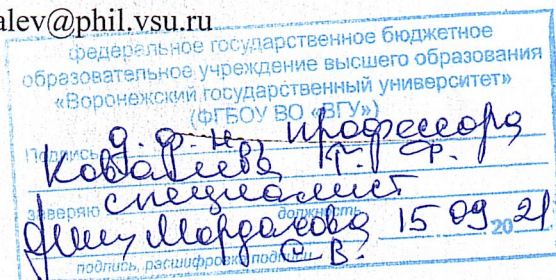 alev@phil.vsu.ru
федеральное государственное бюджетное
образовательное учреждение высшего образования
«Воронежский государственный университет»
(ФГБОУ ВО «ВГУ»)
Подпись д. ф. н. профессора
Ковалева Г. Ф.
заверяю специалист
должность
Мордакова 15 09 2021
С. В.
подпись, расшифровка подписи